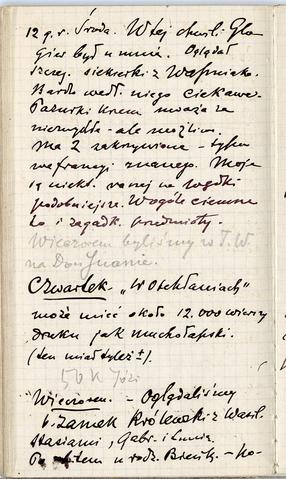 12 g. r. Środa. W tej chwili Glo
Gier był u mnie. Oglądał
szcreg. siekierki z
Bardzo wedł. niego ciekawe.
Pazurki Krem uważa za
niezwykłe - ale możliwe.
Ma 2 zakrzywione - tylko
we francyi znanego. Moje
są niekt. raczej na
podobniejsze. Wogóle ciemne
to i zagadk. przedmioty.
Wieczorem byliśmy w T. W.
na Don Juanie.
Czwartek - "W Otchłaniach"
może mieć około 12.000 wierszy
druku jak muchołapski.
(ten miał tyleż ±).
50 K Józi
Wieczorem. - Oglądaliśmy
Zamek Królewski z Wasil.
Stasiami, Gabr. i Lunią.
Potem u rodz. - po-